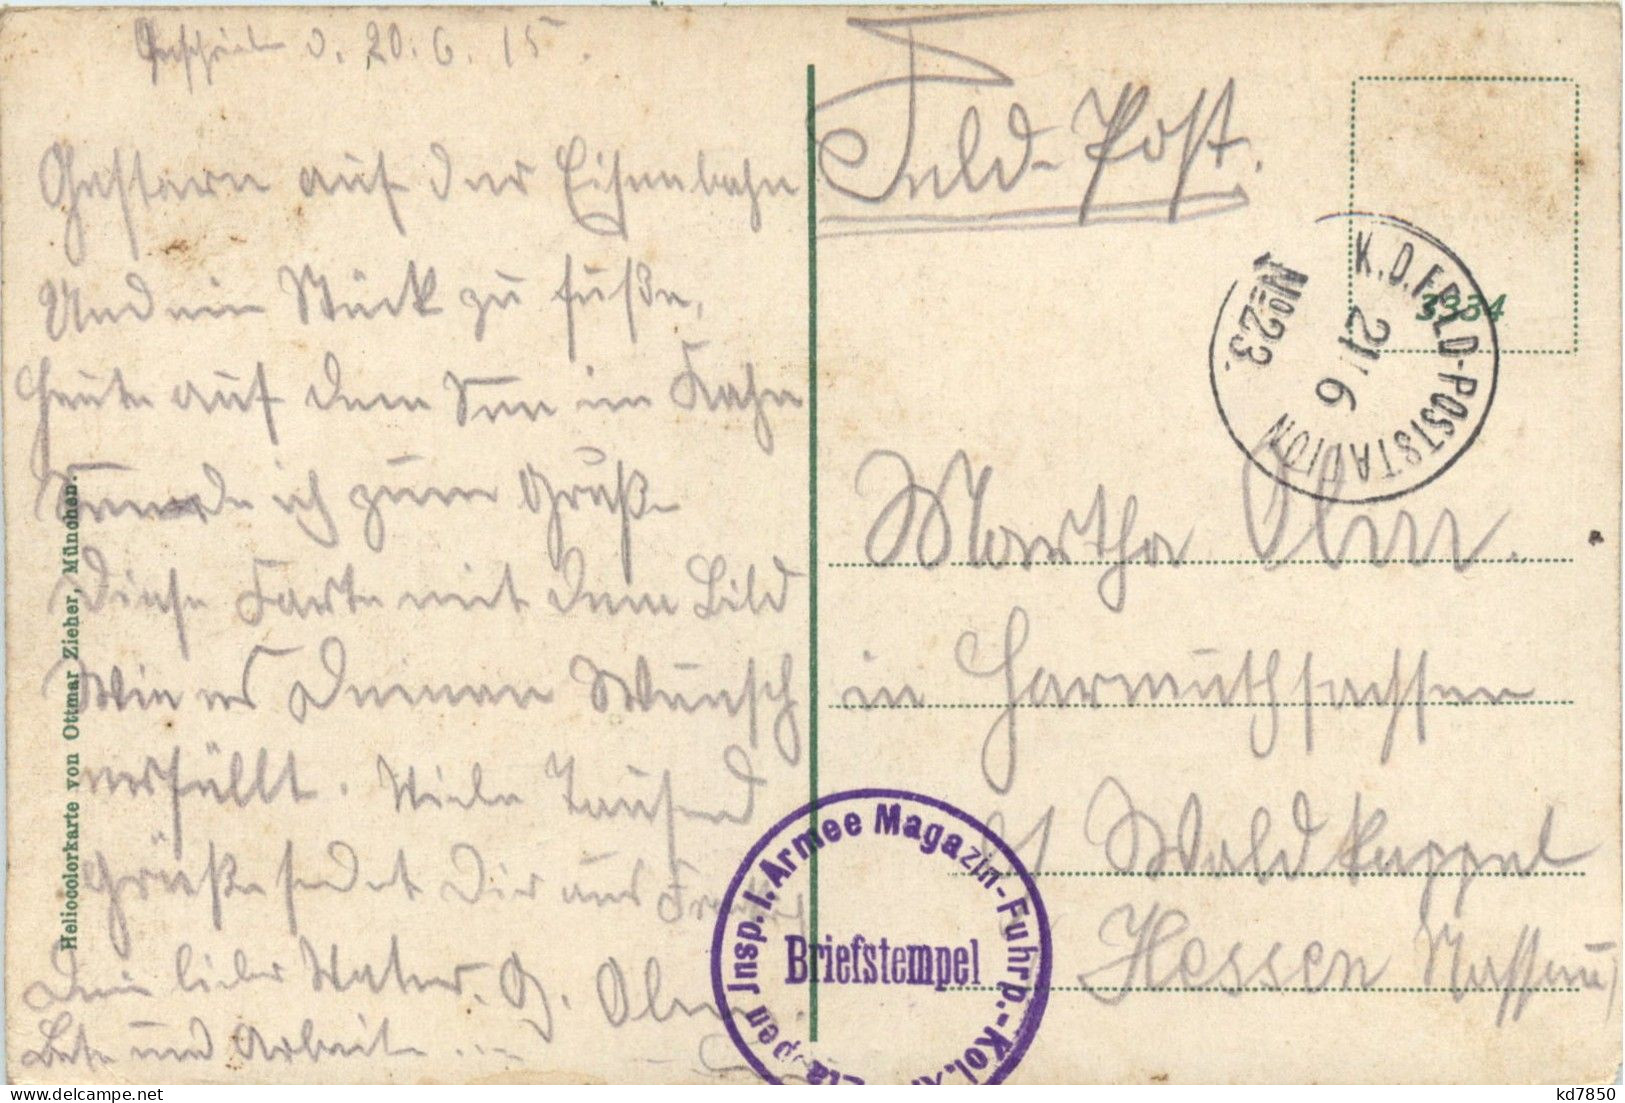 Geschrieben d. 20.6.15.
Gestern auf der Eisenbahn
Und ein Stück zu fuße,
Heute auf dem See im Kahn
Sende ich zum Gruße
Diese Karte mit dem Bild
Wie es Deinen Wunsch
erfüllt. Viele Tausend
Grüße sendet Dir aus
Dein lieber Vater. G. Olm
Bete und Arbeite ...
Heliocolorkarte von Ottmar Zieher, München.
Feld-Post.
3334
K.D.FELD-POSTSTATION
21 6
No 23.
Martha Olm.
in Harmuthsachsen
Waldkappel
Hessen Nassau
Etappen Jnsp. I. Armee Magazin-Fuhrp.-Kol.
Briefstempel
kd7850